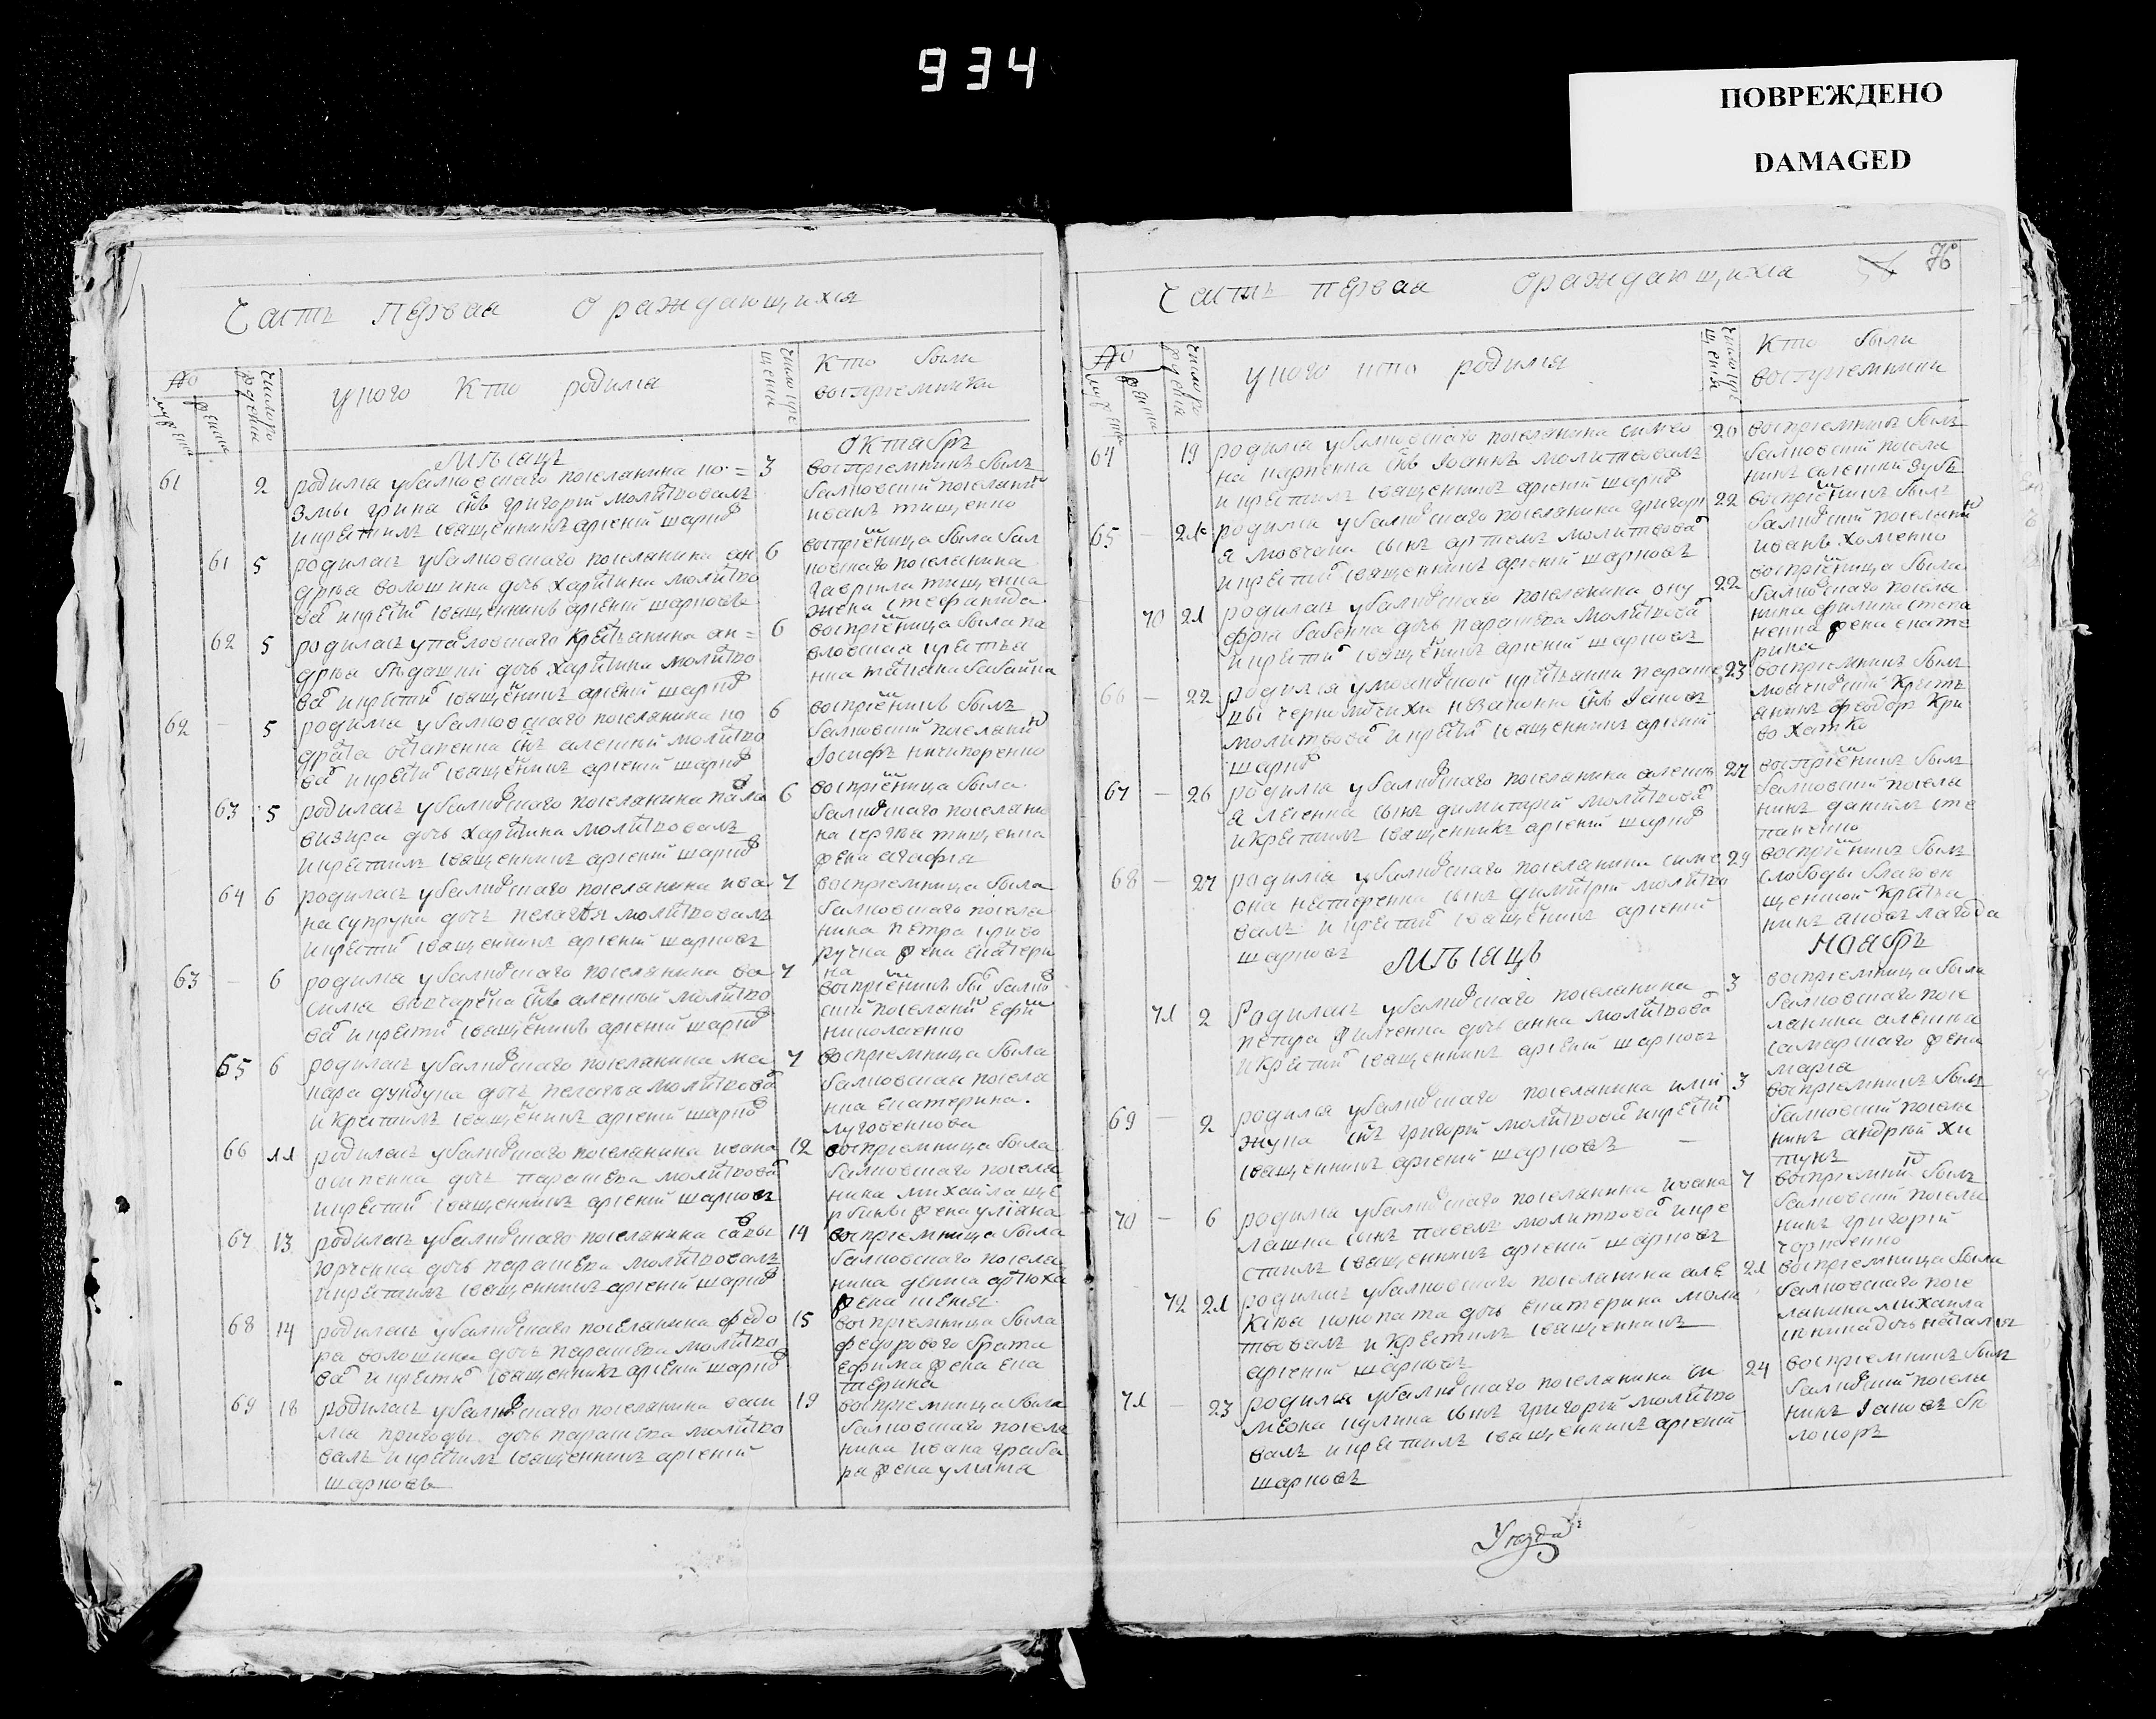 934
ПОВРЕЖДЕНО
DAMAGED
Часть первая О раждающихся
№
число ро
жденiя
у кого кто родился
число кре
щенiя
кто были
воспрiемники
Мѣсяцъ
октябрь
61 2 родился убалковскаго поселянина ко=
змы грина снъ григорiй молитвовалъ
и крестилъ священникъ арсенiй шарков
3 воспрiемникъ былъ
балковскiй поселяни
иванъ тищенко
61 5 родилась убалковскаго поселянина ан
дрѣя волошина дочь харитина молитво
ва и крести священникъ арсенiй шарковъ
6 воспрiемница была бал
ковскаго поселянина
гаврiила тищенка
жена стефанида
62 5 родилась упавловскаго крестьянина ан=
дрѣя дочь харитина молитво
ва и крестил священникъ арсенiй шарков
6 воспрiемница была па
вловская крестья
нка татiана
62 5 родился убалковскаго поселянина ко
драта остапенка снъ алексiй молитво
ва и крести священникъ арсенiй шарков
6 воспрiемникъ былъ
балковскiй поселяни
Iосифъ ничипоренко
63 5 родилась убалковскаго поселянина павла
визира дочь харитина молитвовалъ
и крестилъ священникъ арсенiй шарков
6 воспрiемница была
балковскаго поселяни
на сергѣя тищенка
жена агафiя
64 6 родилась убалковскаго поселянина ива
на супруна дочь пелагѣя молитвовалъ
и крести священникъ арсенiй шарковъ
7 воспрiемница была
балковскаго поселя
нина петра криво
ручка жена екатери
на
63 6 родился убалковскаго поселянина ва
силiя снъ алексѣй молитво
ва и крести священникъ арсенiй шарков
7 воспрiемникъ бы балков
скiй поселяни ефим
николаенко
65 6 родилась убалковскаго поселянина ма
кара дундука дочь пелагѣя молитвова
и крестилъ священникъ арсенiй шарков
7 воспрiемница была
балковская поселя
нка екатерина
луговенкова
66 11 родилась убалковскаго поселянина ивана
осипенка дочь параскева молитвова
и крести священникъ арсенiй шарковъ
12 воспрiемница была
балковскаго поселя
нина михайла ще
рбины жена улiяна
67 13 родилась убалковскаго поселянина савы
юрченка дочь параскева молитвовалъ
и крестилъ священникъ арсенiй шарков
14 воспрiемница была
балковскаго поселя
нина дениса артюха
жена
68 14 родилась убалковскаго поселянина федо
ра волошина дочь параскева молитво
ва и крести священникъ арсенiй шарков
15 воспрiемница была
федорового брата
ефима жена ека
терина
69 18 родилась убалковскаго поселянина васи
лiя пригоды дочь параскева молитво
валъ и крестилъ священникъ арсенiй
шарковъ
19 воспрiемница была
балковскаго поселя
нина ивана граба
ря жена улита
76
Часть первая О раждающихся
№
число ро
жденiя
у кого кто родился
число кре
щенiя
кто были
воспрiемники
64 19 родился убалковскаго поселянина симео
на снъ Iоаннъ молитвовалъ
и крестилъ священникъ арсенiй шарков
20 воспрiемникъ былъ
балковскiй поселя
нинъ алексiй зубъ
65 21 родился убалковскаго поселянина григорi
я мовчана сынъ артемъ молитвова
и крестил священникъ арсенiй шарковъ
22 воспрiемникъ былъ
балковскiй поселяни
иванъ хоменко
70 21 родилась убалковскаго поселянина ону
фрiя бабенка дочь параскева молитвова
и крестил священникъ арсенiй шарковъ
22 воспрiемница была
балковскаго поселя
нина филипа степа
ненка жена екате
рина
66 22 родился крестьянки параске
вы незаконно снъ Iаковъ
молитвова и крести священникъ арсенiй
шарков
23 воспрiемникъ былъ
крестья
анинъ феодоръ кри
вохатко
67 26 родился убалковскаго поселянина алексѣ
я лесенка сынъ димитрiй молитвова
и крестилъ священникъ арсенiй шарков
27 воспрiемникъ былъ
балковскiй поселя
нинъ данiилъ сте
паненко
68 27 родился убалковскаго поселянина симе
она нестеренка сынъ димитрiй молитво
валъ и крести священникъ арсенiй
шарковъ
29 воспрiемникъ былъ
слободы благове
щенской крестья
нинъ яковъ лагода
Мѣсяцъ
ноябрь
71 2 Родилась убалковскаго поселянина
петра филченка дочь анна молитвова
и крести священникъ арсенiй шарковъ
3 воспрiемница была
балковскаго посе
лянина алексѣя
самарскаго жена
марiя
69 2 родился убалковскаго поселянина илiи
жука снъ григорiй молитвова и крести
священникъ арсенiй шарковъ
3 воспрiемникъ былъ
балковскiй поселя
нинъ андрѣй хи
тунъ
70 6 родился убалковскаго поселянина ивана
лашка сынъ павелъ молитвова и кре
стилъ священникъ арсенiй шарковъ
7 воспрiемник былъ
балковскiй поселя
нинъ григорiй
чорненко
72 21 родилась убалковскаго поселянина але
ксѣя конопата дочь екатерина моли
твовалъ и крестилъ священникъ
арсенiй шарковъ
21 воспрiемница была
балковскаго посе
лянина михаила
дочь наталiя
71 23 родился убалковскаго поселянина си
меона кулика сынъ григорiй молитво
валъ и крестилъ священникъ арсенiй
шарковъ
24 воспрiемникъ былъ
балковскiй поселя
нинъ Iаковъ бѣ
локоръ
Уѣзда